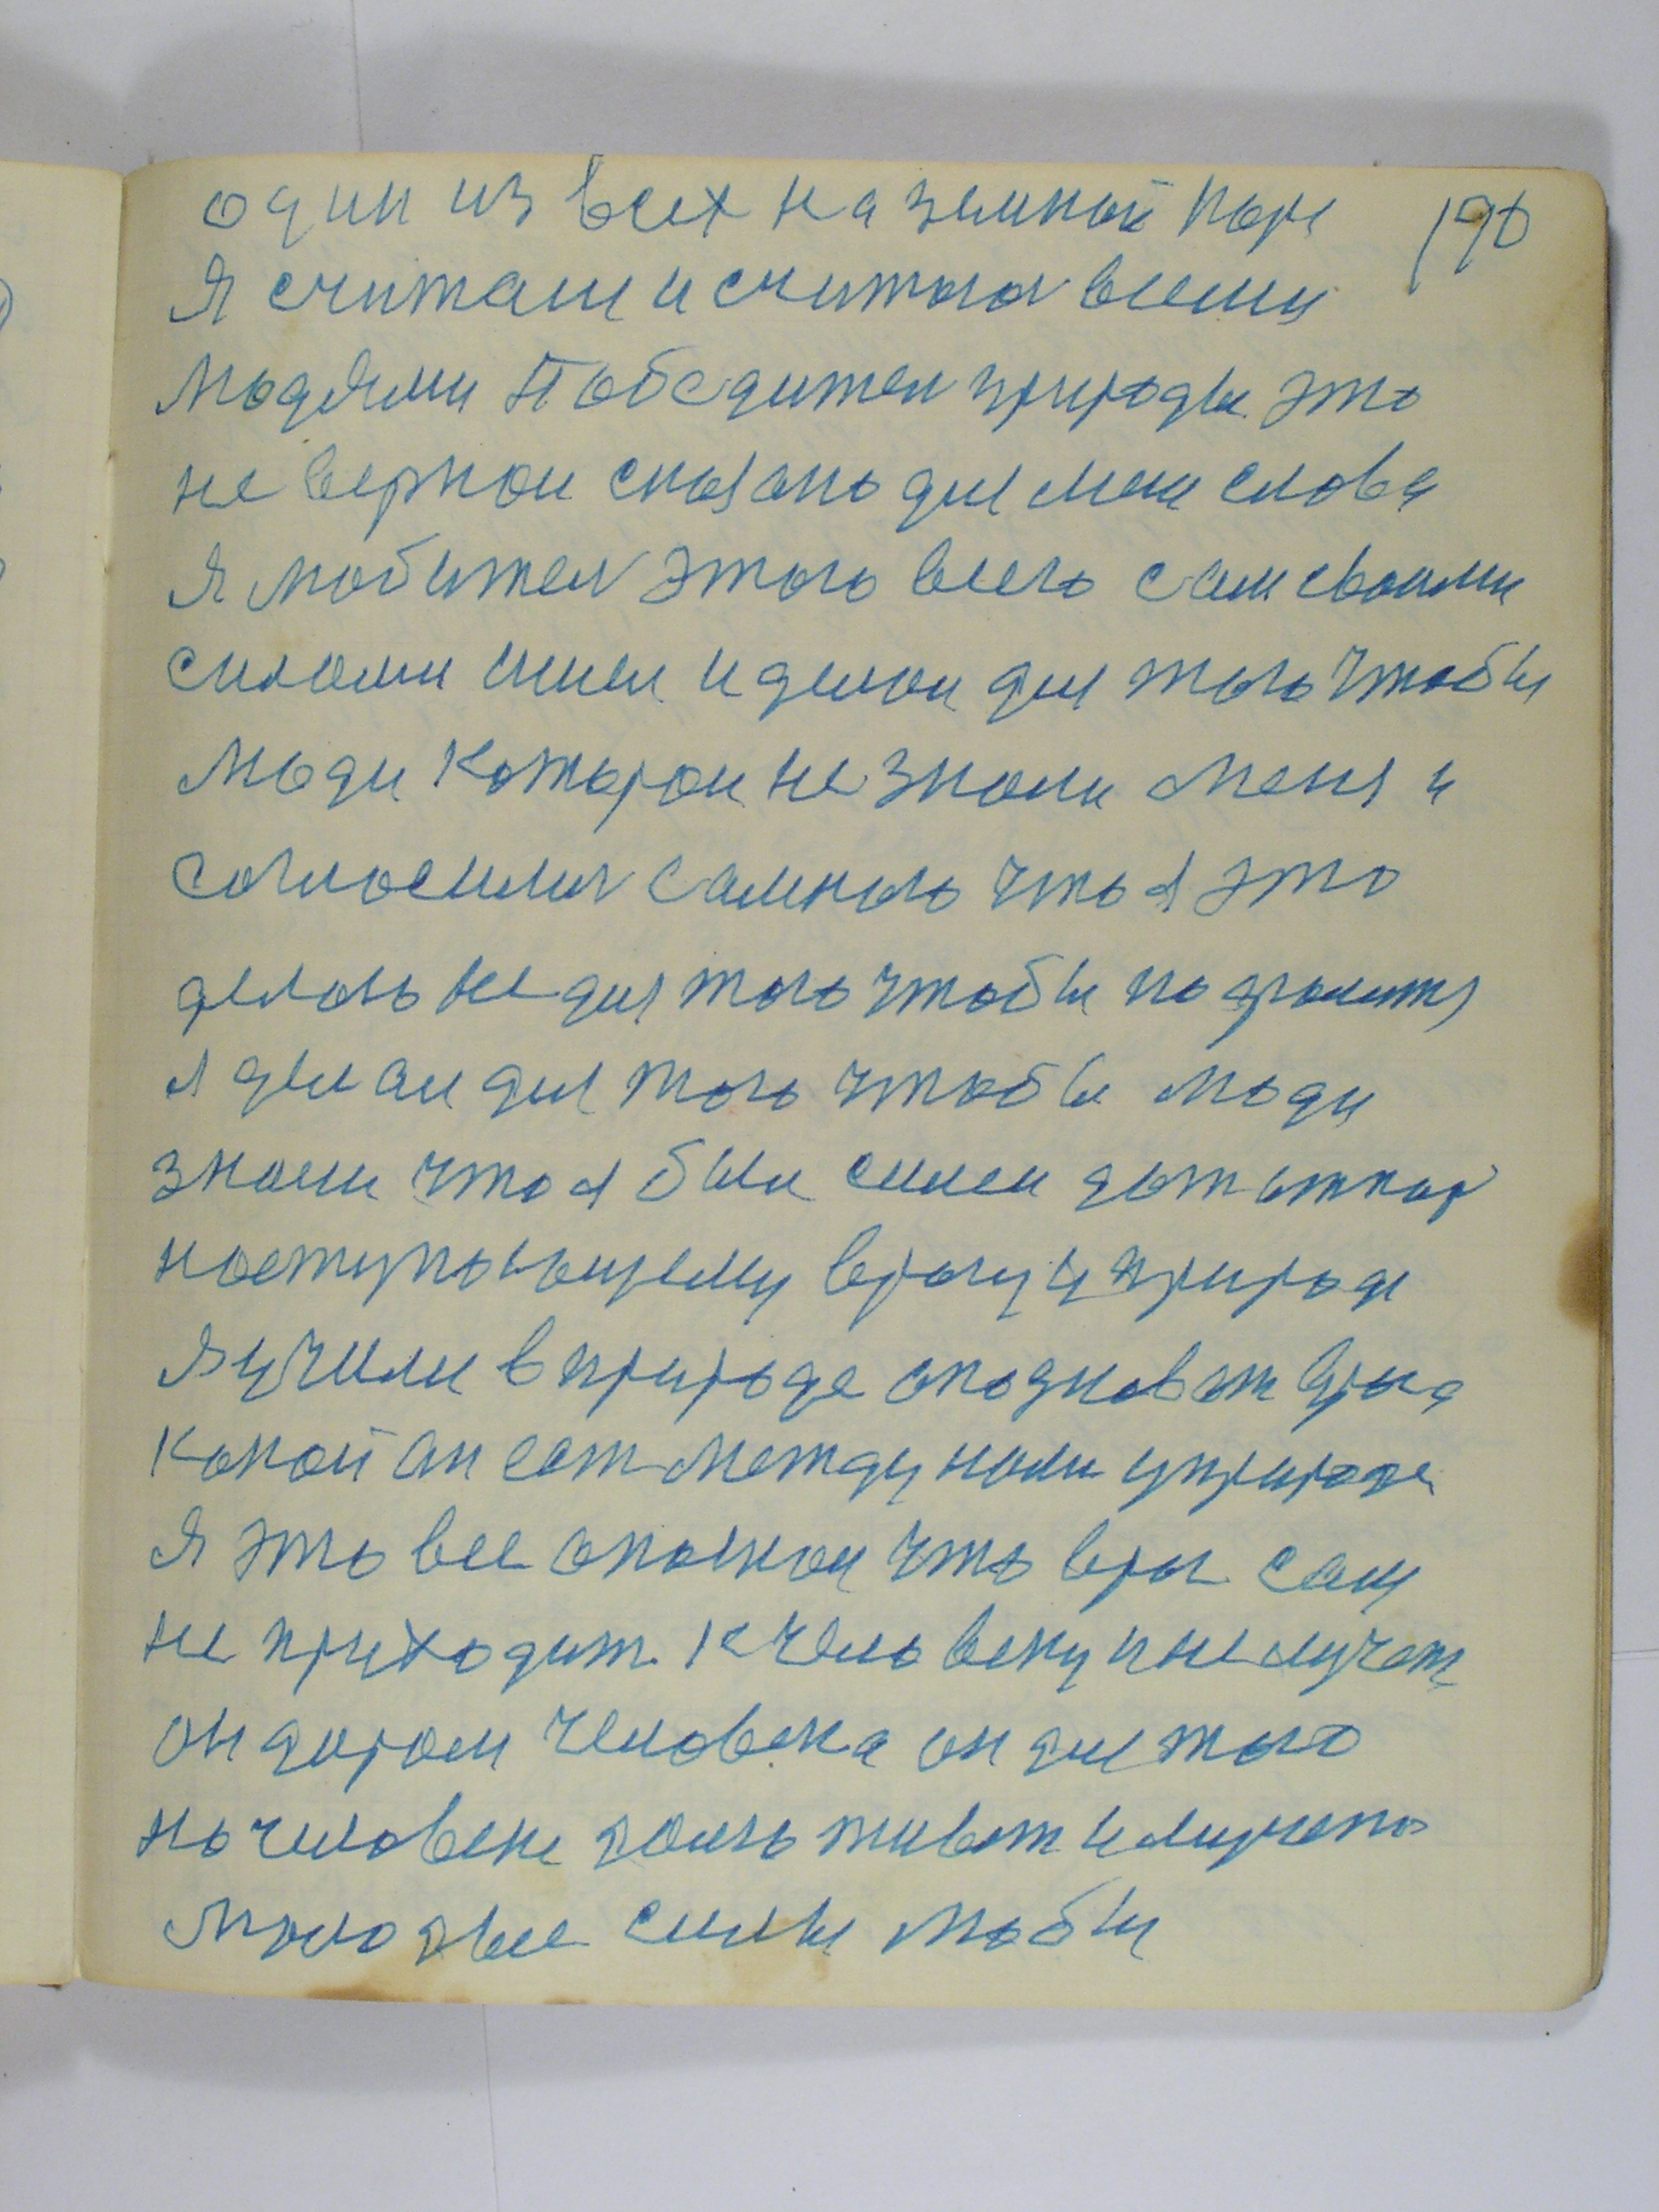 один из всех на земной коре 190
Я считали и считаюсь всеми
людями Победител природы это
не вернои сказано для меня слова
Я любител этого всего сам своими
силоми сшили и делаи для того чтобы
люди которои не знали меня и
согласились самною что я это
делаю не для того чтобы
я делаи для того чтобы люди
знали что я был силен дать отпор
наступающему врагу у природе
Я училси в природе опознават врага
какой он ест между нами у природе
Я это все опознал что враг сам
не приходит к человеку и не мучет
он даром человека он для того
на человеке живет и
молодые силы любы